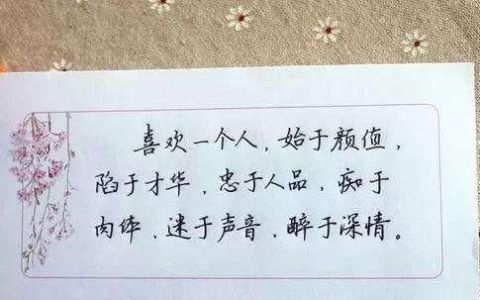 喜欢一个人，始于颜值，
陷于才华，忠于人品，痴于
肉体、迷于声音、醉于深情。